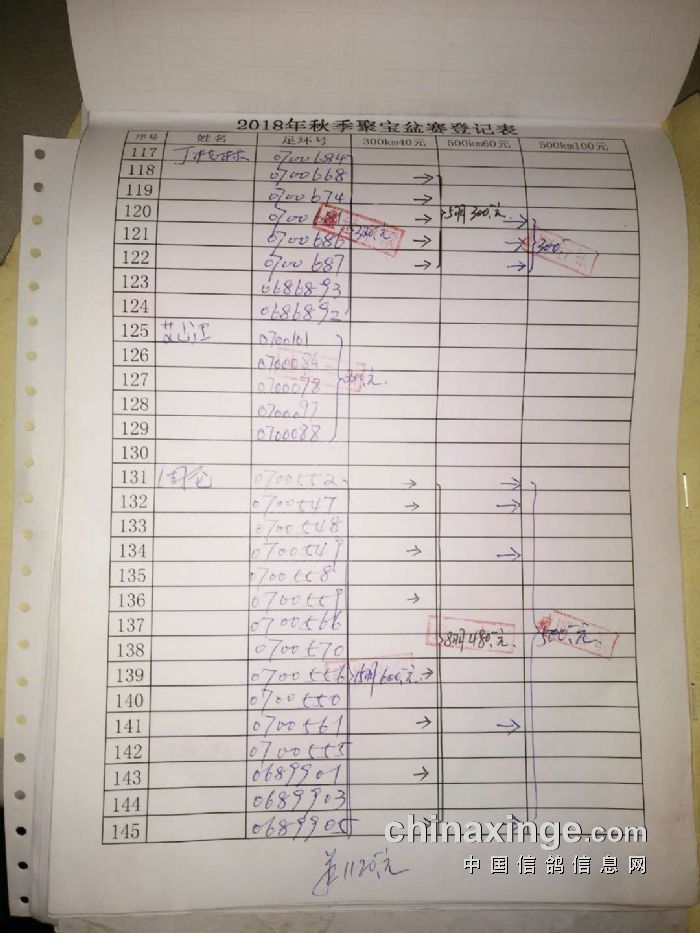 2018年秋季聚宝盆赛登记表
序号 姓名 足环号 300km40元 500km60元 500km100元
117 0700684
118 0700668 →
119 0700674 →
120 0700681 → 5羽300.元 →
121 0700686 → →
122 0700687 → →
123 0686893
124 0686892
125 0700101
126 0700084
127 0700078
128 0700097
129 0700088
130
131 0700552 → →
132 0700547 → →
133 0700548
134 0700549 → →
135 0700558
136 0700559 →
137 0700566
138 0700570 8羽480.元 500.元
139 0700556 15羽600.元 →
140 0700550
141 0700561 → →
142 0700555
143 0689901 →
144 0689903
145 0689905 →
chinaxinge.com
中国信鸽信息网
1120.元